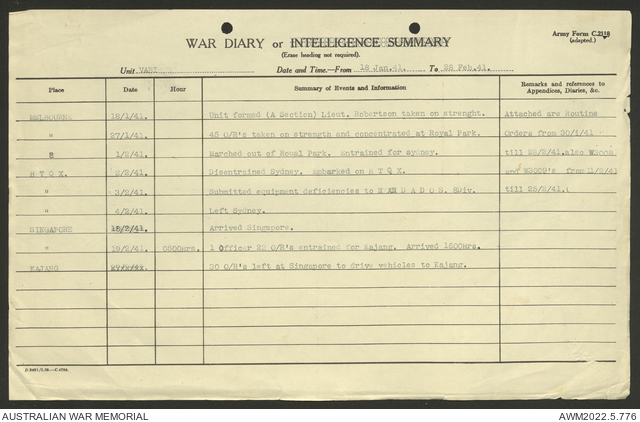 WAR DIARY or INTELLIGENCE SUMMARY
(Erase heading not required).
Army Form C.2118
(adapted.)
Unit
Date and Time.—From 18 Jan.41. To 28 Feb.41.
Place Date Hour Summary of Events and Information Remarks and references to Appendices, Diaries, &c.
MELBOURNE 18/1/41. Unit formed (A Section) Lieut. Robertson taken on strenght. Attached are Routine
" 27/1/41. 45 O/R's taken on strength and concentrated at Royal Park. Orders from 30/1/41
" 1/2/41. Marched out of Royal Park. Entrained for Sydney. till 28/2/41. also
H T Q X. 2/2/41. Disentrained Sydney. embarked on H T Q X. and from 11/2/41
" 3/2/41. Submitted equipment deficiencies to D A D O S. 8Div. till 25/2/41.
" 4/2/41. Left Sydney.
SINGAPORE 18/2/41. Arrived Singapore.
" 19/2/41. 0800Hrs. 1 Officer 22 O/R's entrained for Kajang. Arrived 1500Hrs.
KAJANG 30 O/R's left at Singapore to drive vehicles to Kajang.
AUSTRALIAN WAR MEMORIAL
AWM2022.5.776